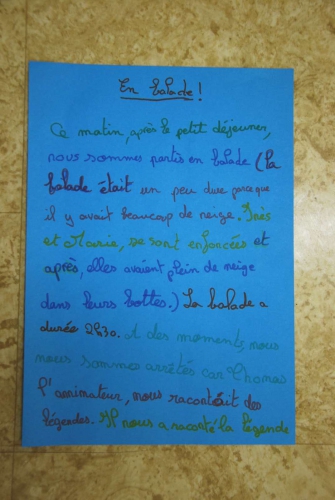 En balade !
Ce matin, après le petit déjeuner,
nous sommes partis en balade (la
balade était un peu dure parce que
il y avait beaucoup de neige. Inès
et Marie, se sont enfoncées et
après, elles avaient plein de neige
dans leurs bottes.) La balade a
durée 2h30. A des moments, nous
nous sommes arrêtés car Thomas
l'animateur, nous racontait des
légendes. Il nous a raconté la légende